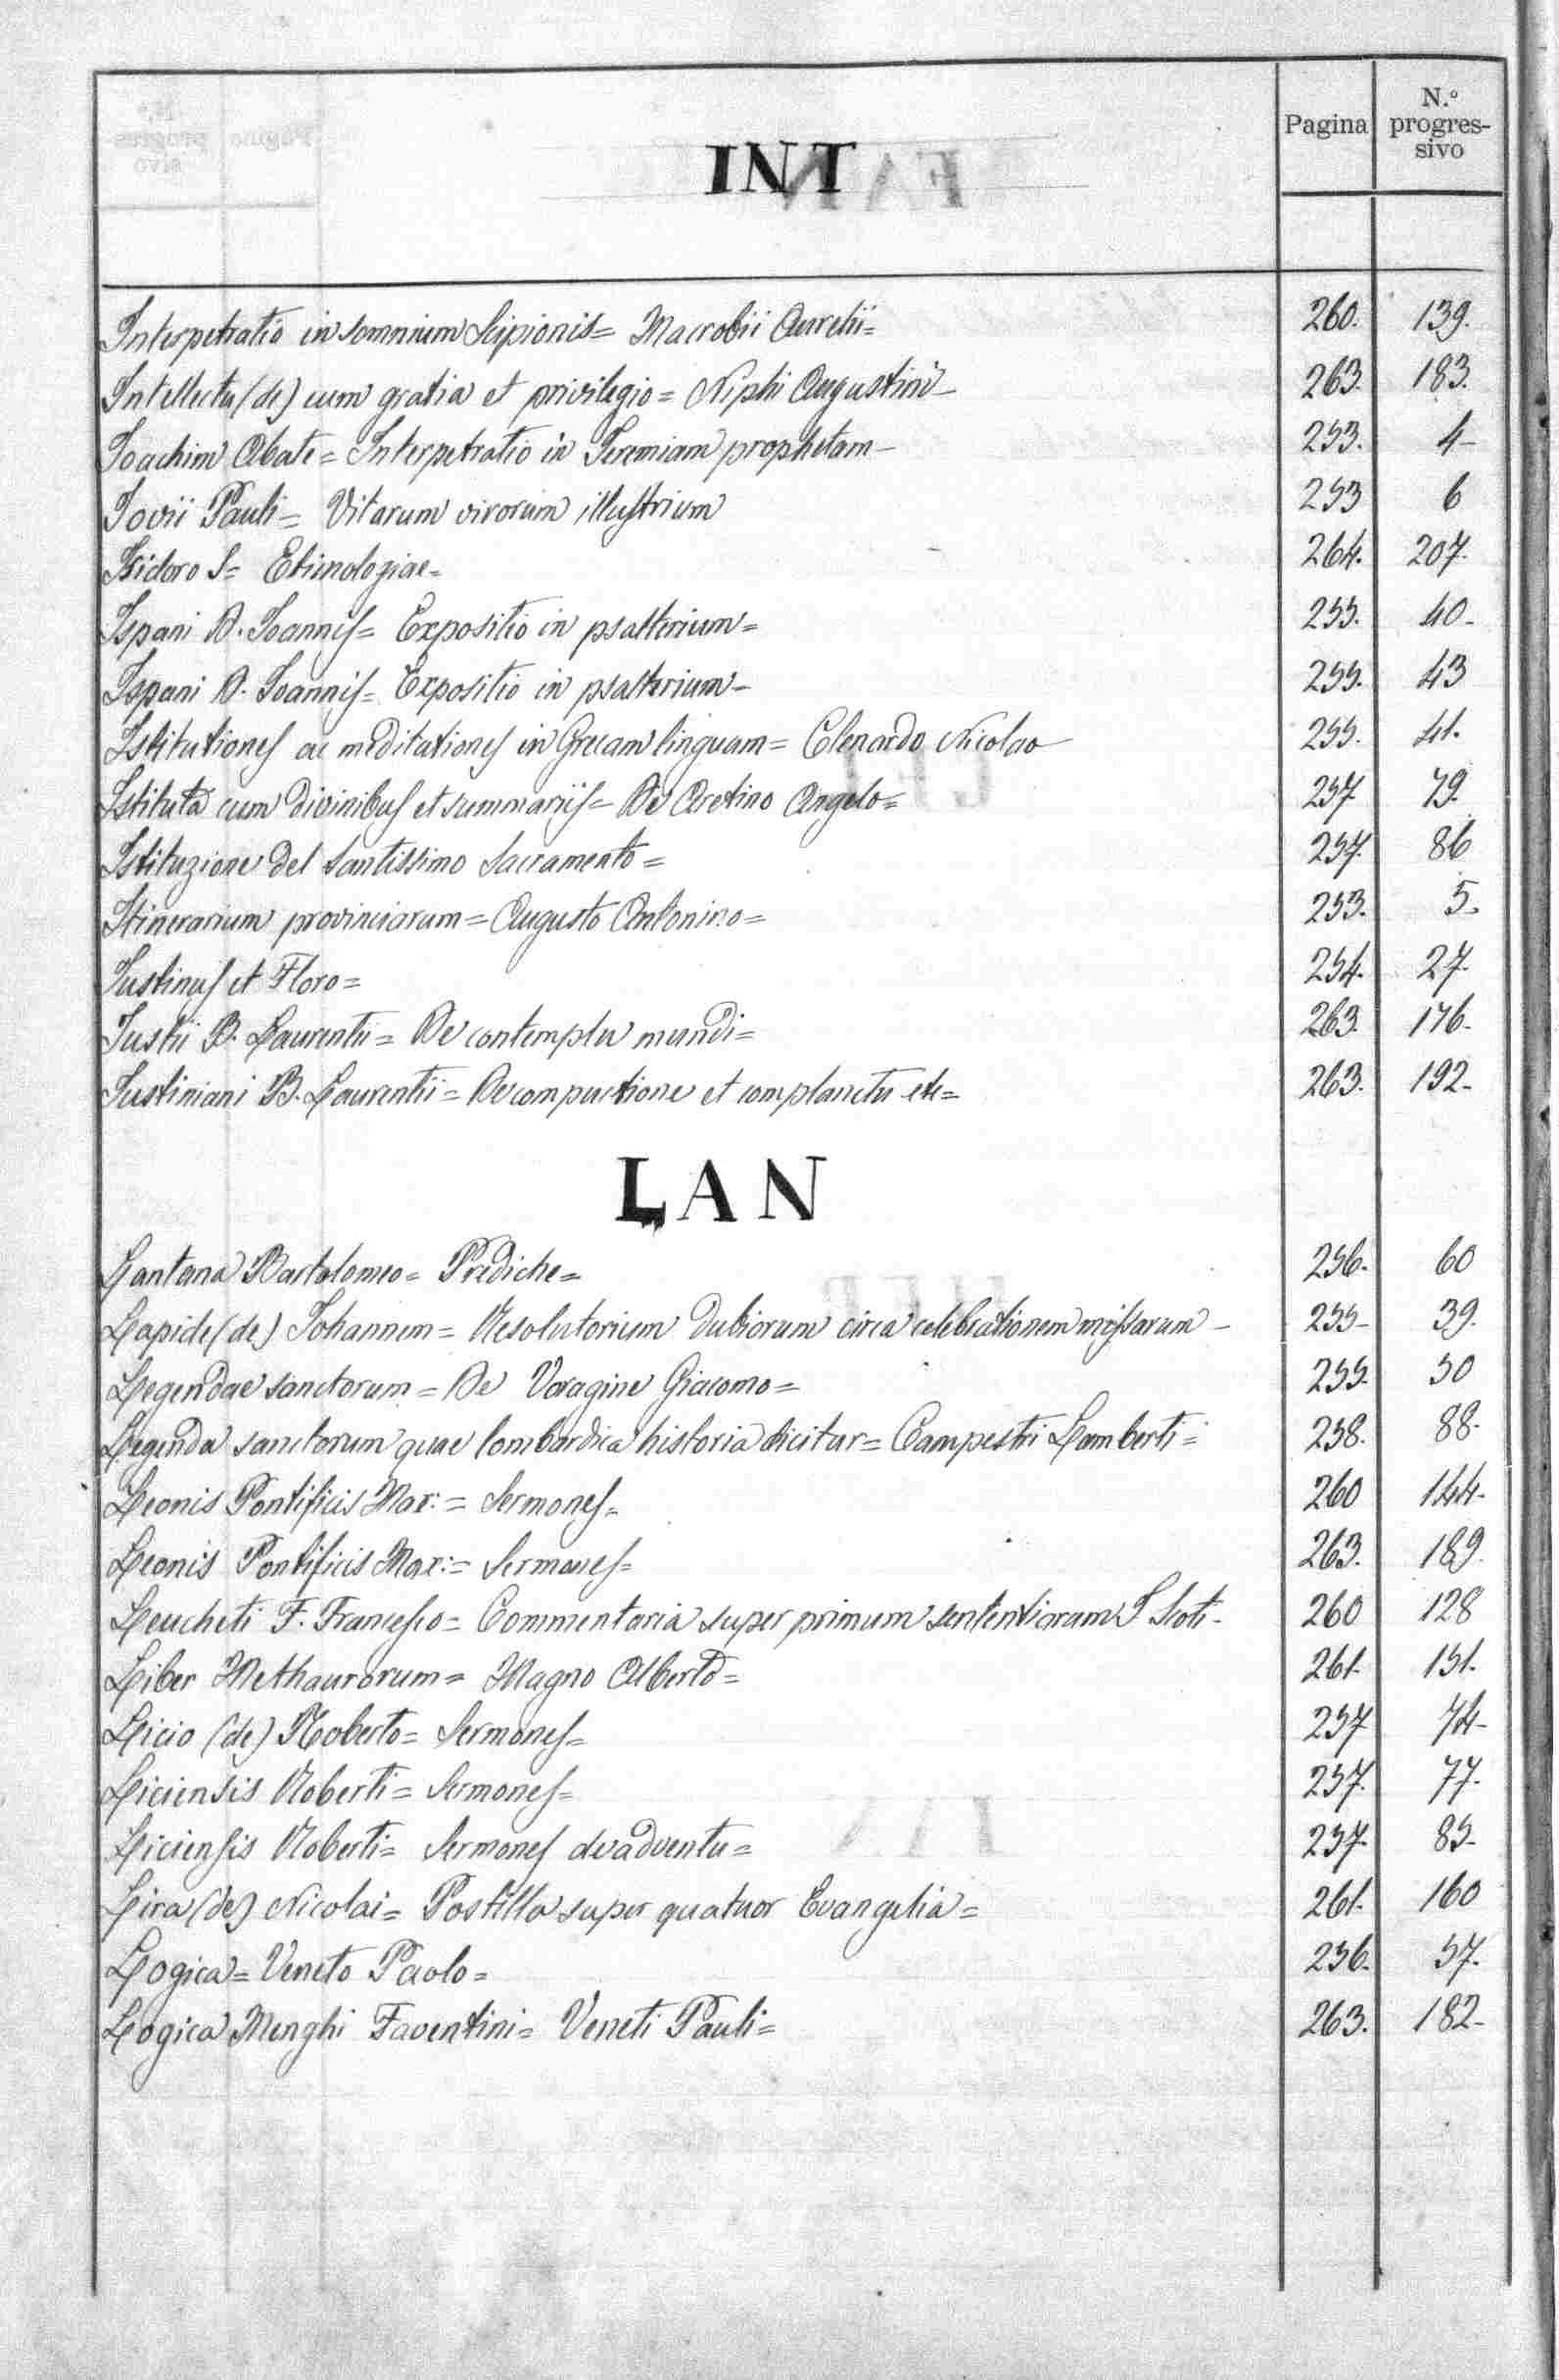 INT
Pagina
N.º progressivo
Interpetratio in somnium Scipionis= Macrobii Aurelii= 260. 139.
Intellectu (de) cum gratia et privilegio= Niphi Augustini- 263. 183.
Ioachim Abate= Interpetratio in Ieremiam prophetam- 253. 4-
Iovii Pauli= Vitarum virorum illustrium 253 6
Isidoro S= Etimologiae- 264. 207.
Ispani D. Ioannis= Expositio in psalterium= 255. 40-
Ispani D. Ioannis= Expositio in psalterium- 255. 43
Istitutiones ac meditationes in Grecam linguam= Clenardo Nicolao 255. 41.
Istituta cum divinibus et summariis= De Aretino Angelo= 257 79.
Istituzione del Santissimo Sacramento= 257. 86
Itinerarium provinciarum= Augusto Antonino= 253. 5.
Iustinus et Floro= 254. 27.
Iustii B. Laurentii= De contemptu mundi= 263. 176-
Iustiniani B. Laurentii= De compuctione et complanctu etc= 263. 192-
LAN
Lantana Bartolomeo= Prediche= 256. 60
Lapide (de) Iohannem= Resolutorium dubiorum circa celebrationem missarum- 255- 39.
Legendae sanctorum= De Voragine Giacomo= 255. 50
Legenda sanctorum quae lombardica historia dicitur= Campestri Lamberti= 258. 88.
Leonis Pontificis Max:= Sermones= 260 144-
Leonis Pontificis Max:= Sermones= 263. 189.
Leucheti F. Francesco= Commentaria super primum sententiarum S Scoti- 260 128
Liber Methaurorum= Magno Alberto= 261. 151.
Licio (de) Roberto= Sermones= 257 74-
Liciensis Roberti= Sermones= 257. 77.
Liciensis Roberti= Sermones de adventu= 257. 85-
Lira (de) Nicolai= Postilla super quatuor Evangelia= 261. 160
Logica= Veneto Paolo= 256. 57.
Logica Menghi Faventini= Veneti Pauli= 263. 182-